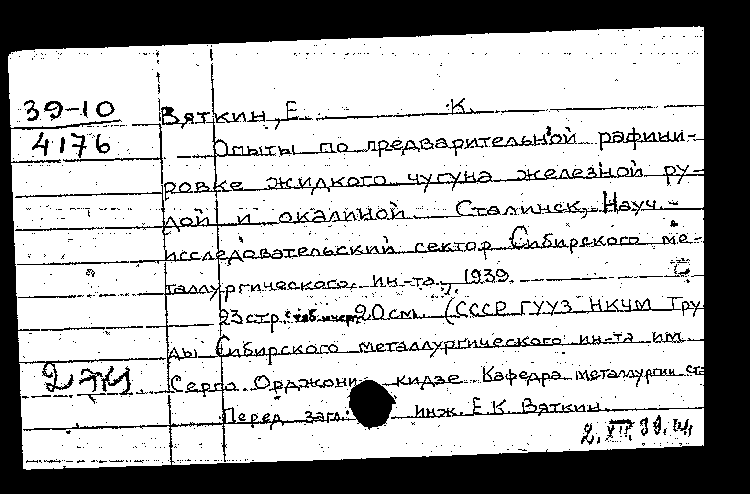 39-10
4176
Вяткин, Е. К.
Опыты по предварительной рафини-
ровке жидкого чугуна железной ру-
дой и окалиной. Сталинск, Науч.-
исследовательский сектор Сибирского ме-
таллургического ин-та, 1939.
23 стр. с табл. 20 см. (СССР ГУУЗ НКЧМ Тру-
ды Сибирского металлургического ин-та им.
Серго Орджоникидзе Кафедра металлургии ст
Перед загл.: инж. Е. К. Вяткин.
2.XII.39.